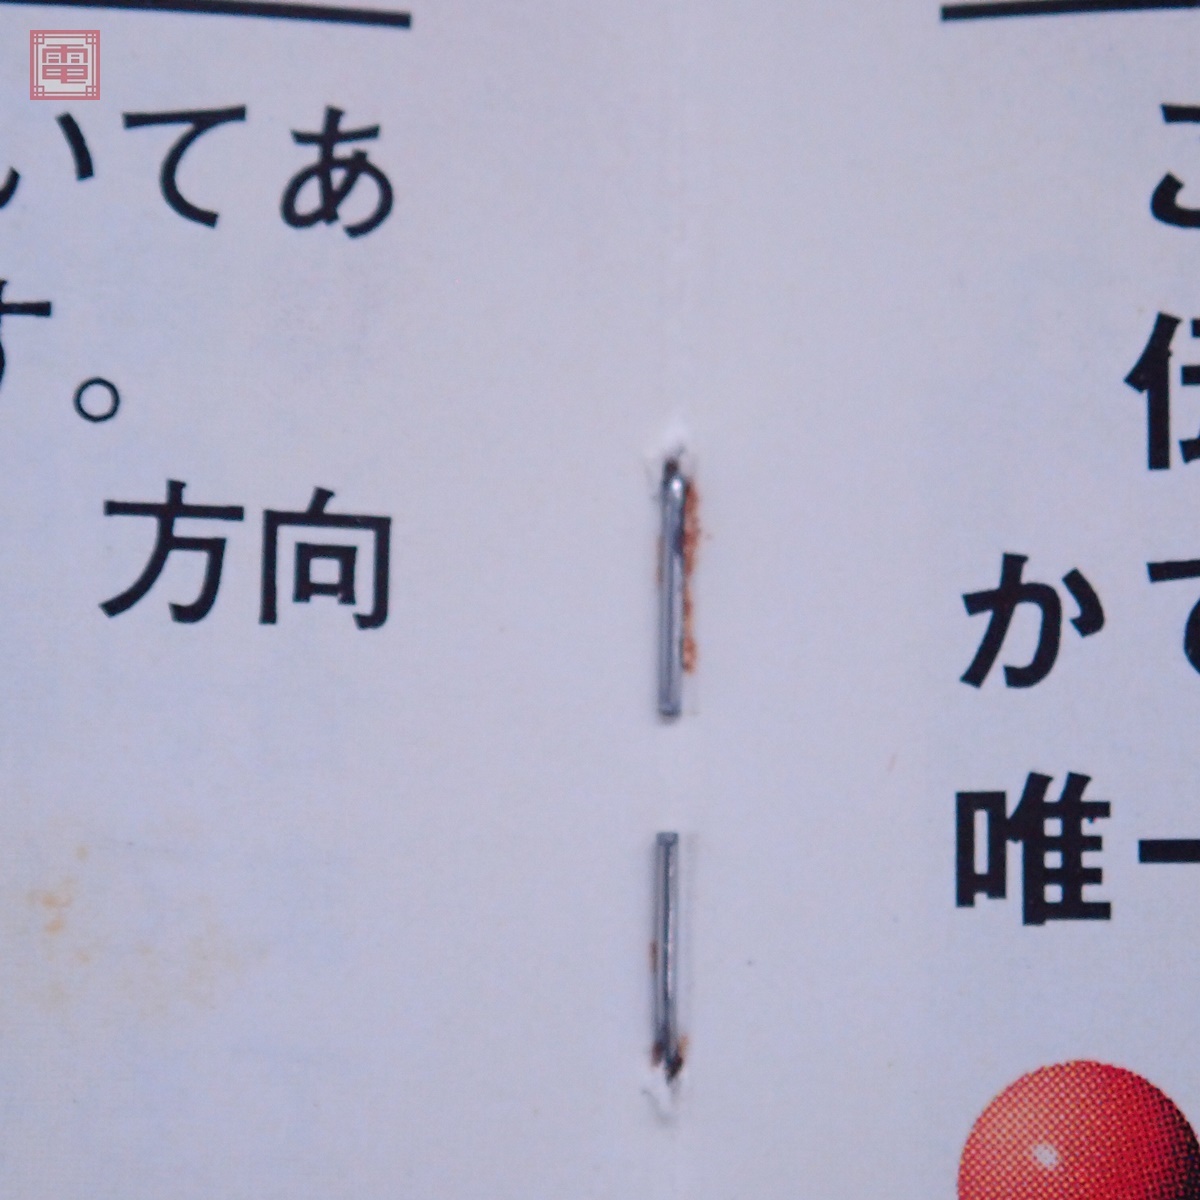 電
いてあ
す。
方向
こ
伝
かで
唯一